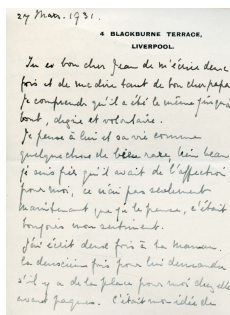 27 Mars. 1931.
4 BLACKBURNE TERRACE,
LIVERPOOL.
Tu es bon cher Jean de m'écrire deux
fois et de me dire tant de bon cher papa
Je comprends qu'il a été le même jusqu'au
bout, digne et volontaire.
Je pense à lui et sa vie comme
quelque chose de bien rare, bien beau
je suis fier qu'il avait de l'affection
pour moi, ce n'est pas seulement
maintenant que je le pense, c'était
toujours mon sentiment.
J'ai écrit deux fois à ta Maman.
la deuxième fois pour lui demander
s'il y a de la place pour moi chez elle
avant paques. C'était mon idée de